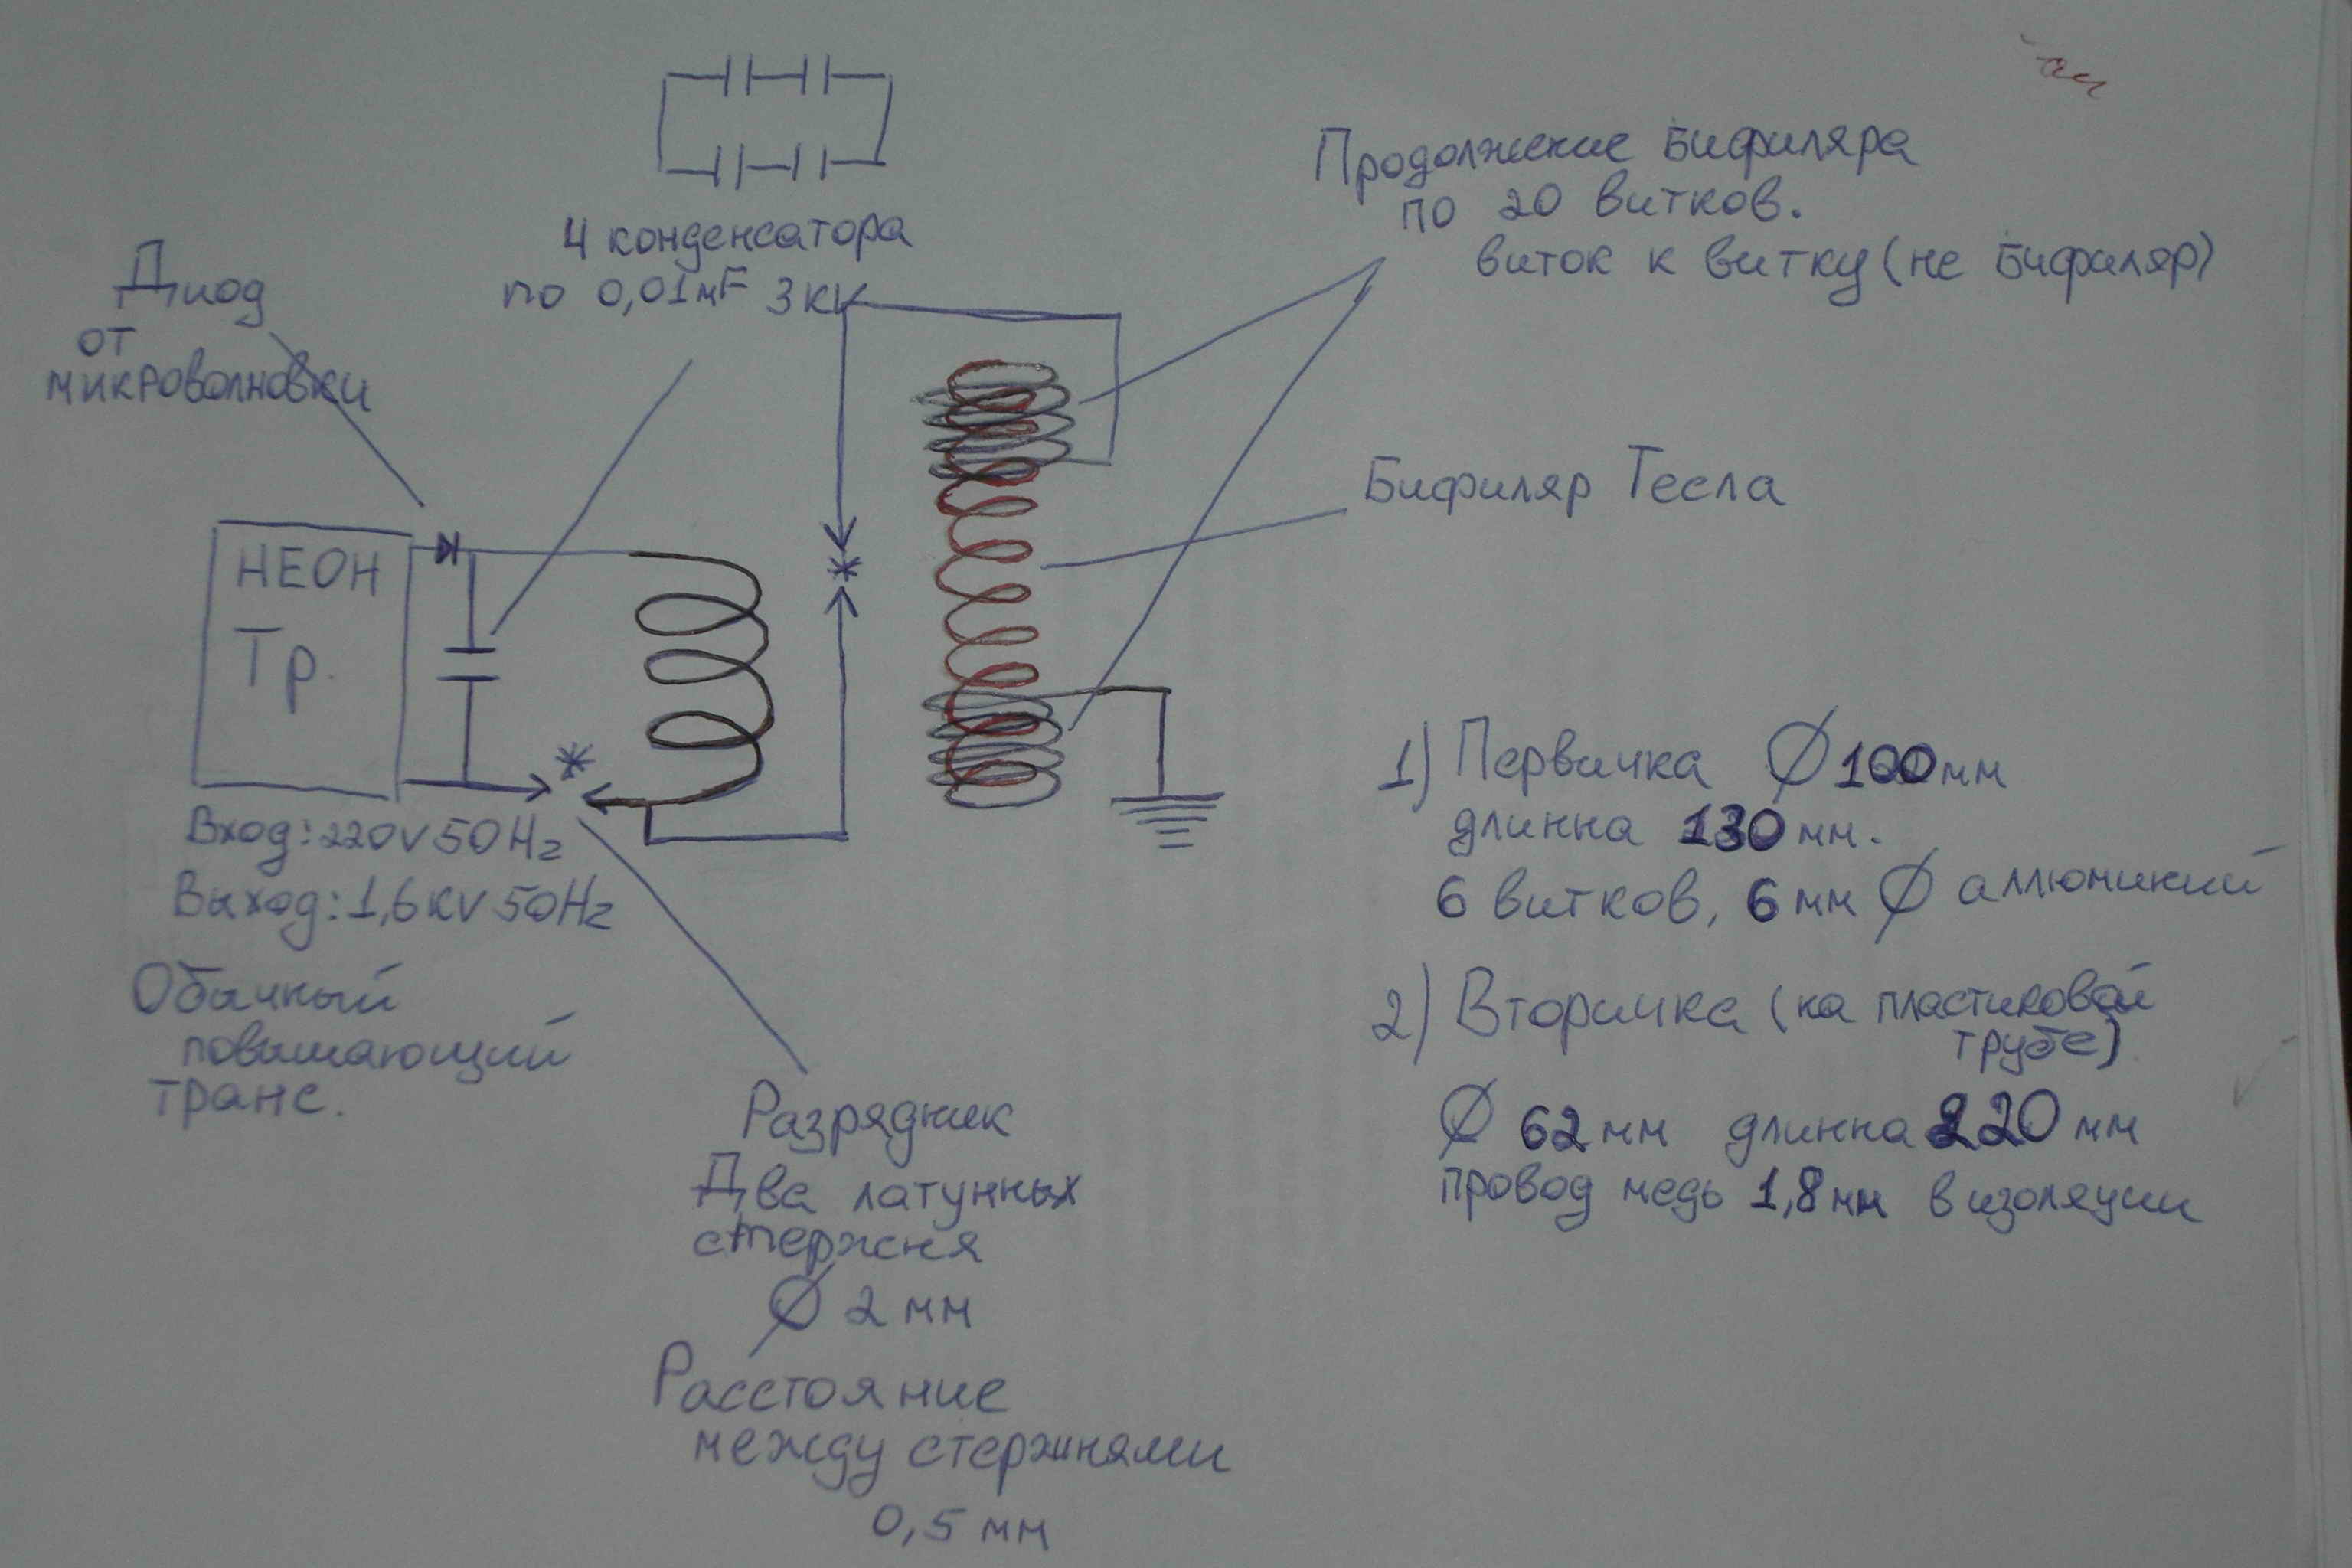 4 конденсатора
по 0,01мF 3кV
Диод
от
микроволновки
Продолжение Бифиляра
по 20 витков.
виток к витку (не Бифиляр)
Бифиляр Тесла
НЕОН
Тр.
Вход: 220V 50Hz
Выход: 1,6кV 50Hz
Обычный
повышающий
транс.
Разрядник
Два латунных
стержня
Ø 2 мм
Расстояние
между стержнями
0,5 мм
1) Первичка Ø 100мм
длинна 130 мм.
6 витков, 6 мм Ø аллюминий
2) Вторичка (на пластиковой
трубе)
Ø 62 мм длинна 220 мм
провод медь 1,8мм в изоляции